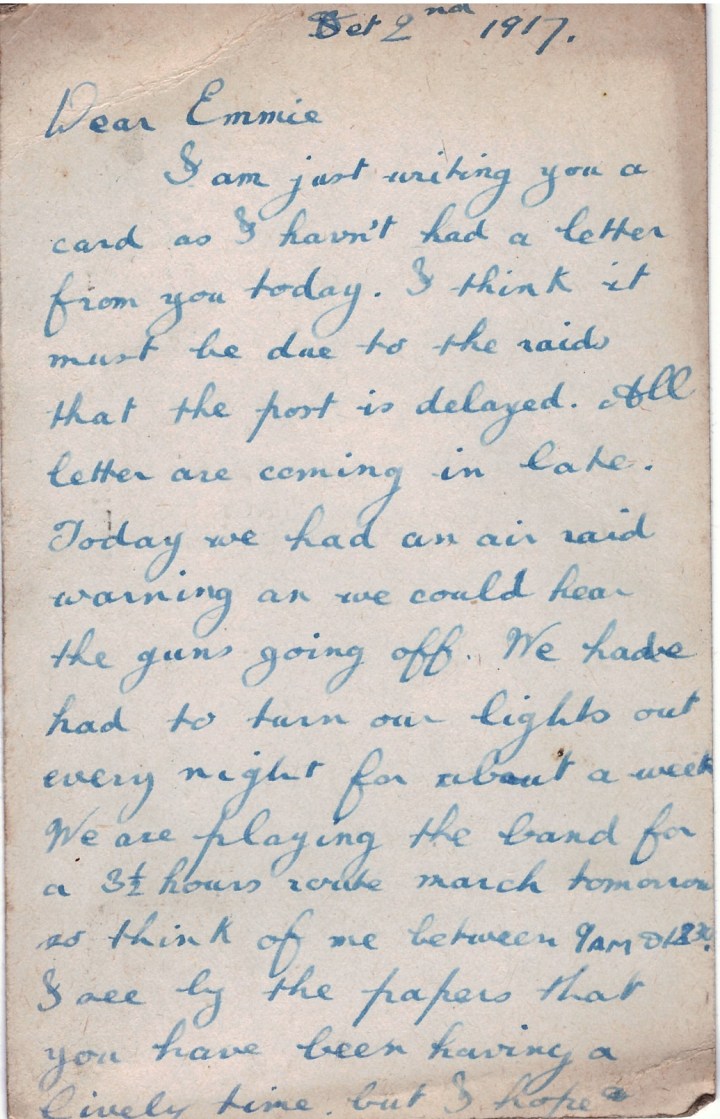 Oct 2nd 1917.
Dear Emmie
I am just writing you a
card as I havn't had a letter
from you today. I think it
must be due to the raids
that the post is delayed. All
letter are coming in late.
Today we had an air raid
warning an we could hear
the guns going off. We have
had to turn our lights out
every night for about a week
We are playing the band for
a 3½ hours route march tomorrow
so think of me between 9AM & 12.30.
I see by the papers that
you have been having a
lively time. but I hope